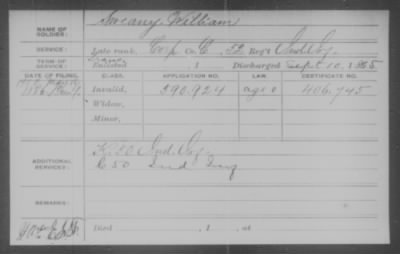 NAME OF SOLDIER: Sweany William
SERVICE: Late rank, Corp Co. C, 52 Reg't Ind. Inf.
TERM OF SERVICE: Enlisted , 1 Discharged Sept. 10, 1865
DATE OF FILING. CLASS. APPLICATION NO. LAW. CERTIFICATE NO.
1886 Invalid, 590.924 406.745
Widow,
Minor,
ADDITIONAL SERVICES: K. 50 Ind. Inf.
C 50 Ind Inf
REMARKS:
Died , 1 , at